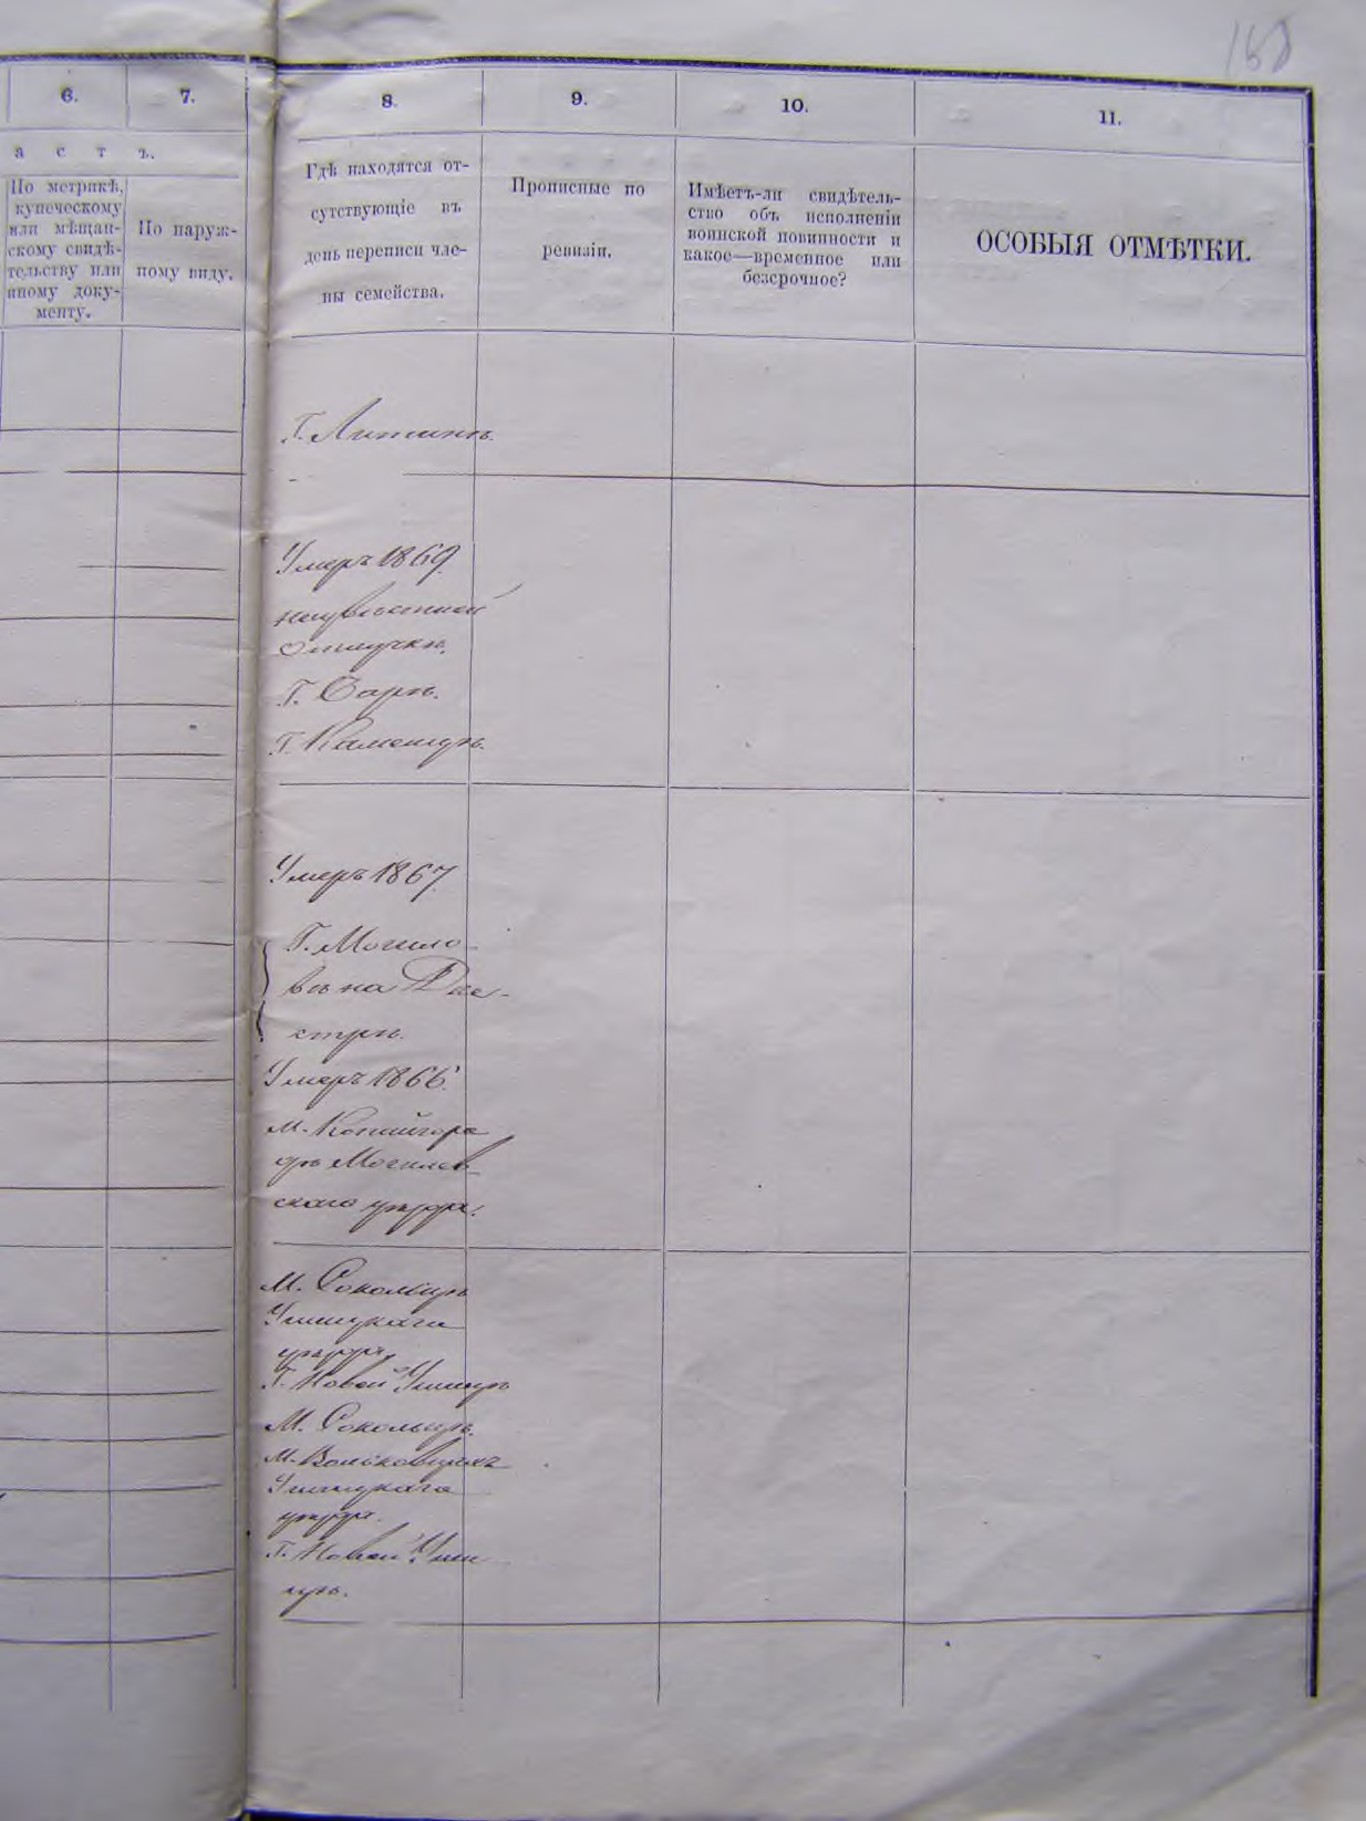 168
6. 7. 8. 9. 10. 11.
а с т ъ.
По метрикѣ,
купеческому
или мѣщан-
скому свидѣ-
тельству или
иному доку-
менту.
По наруж-
ному виду.
Гдѣ находятся от-
сутствующіе въ
день переписи чле-
ны семейства.
Прописные по
ревизіи.
Имѣетъ-ли свидѣтель-
ство объ исполненіи
воинской повинности и
какое—временное или
безсрочное?
ОСОБЫЯ ОТМѢТКИ.
Г. Литинѣ.
Умеръ 1869.
неизвѣстной
отлучкѣ.
Г. Барѣ.
Г. Каменцѣ.
Умеръ 1867
Г. Могиле-
вѣ на Дне-
стрѣ.
Умеръ 1866.
м. Копайгоро
дѣ Могилев-
скаго уѣзда.
М. Сокольцѣ
Ушицкаго
уѣзда.
Г. Новой Ушицѣ
М. Сокольцѣ.
м. Вольковцахъ
Ушицкаго
уѣзда.
Г. Новой Уши
цѣ.